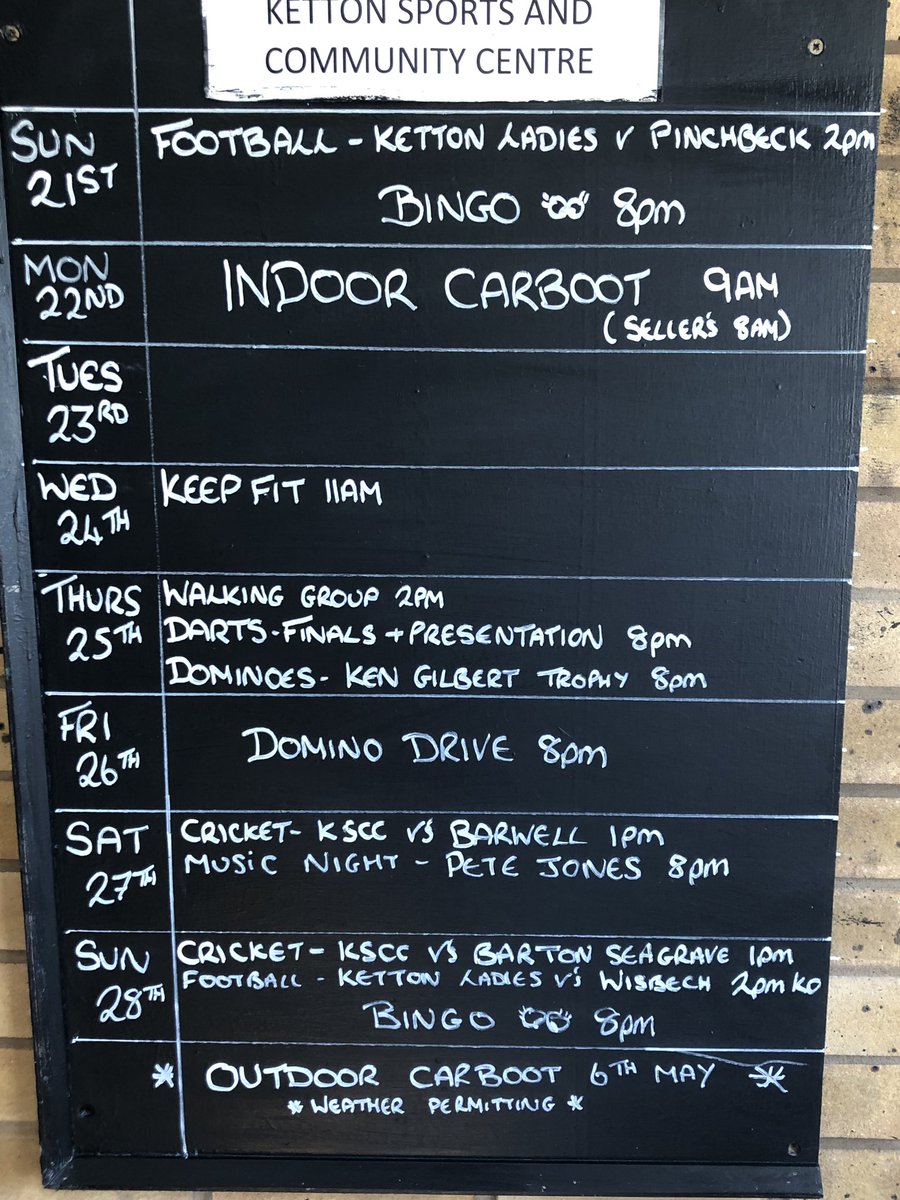 KETTON SPORTS AND
COMMUNITY CENTRE
SUN
21ST
FOOTBALL - KETTON LADIES V PINCHBECK 2pm
BINGO 8pm
MON
22ND
INDOOR CARBOOT 9AM
(SELLER'S 8AM)
TUES
23RD
WED
24TH
KEEP FIT 11AM
THURS
25TH
WALKING GROUP 2PM
DARTS-FINALS + PRESENTATION 8pm
DOMINOES - KEN GILBERT TROPHY 8pm
FRI
26TH
DOMINO DRIVE 8pm
SAT
27TH
CRICKET- KSCC V'S BARWELL 1pm
MUSIC NIGHT - PETE JONES 8pm
SUN
28TH
CRICKET- KSCC V'S BARTON SEAGRAVE 1pm
FOOTBALL - KETTON LADIES V'S WISBECH 2pm KO
BINGO 8pm
* OUTDOOR CARBOOT 6TH MAY *
* WEATHER PERMITTING *